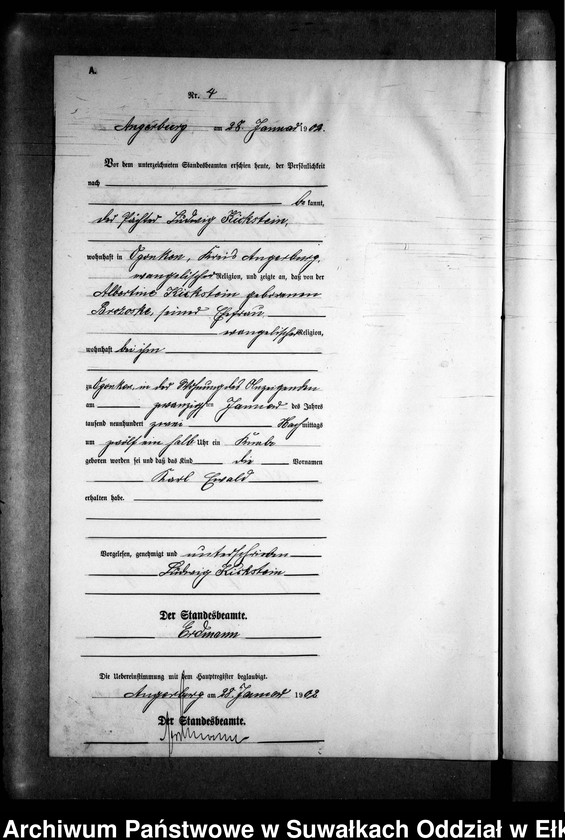 A.
Nr. 4
Angerburg am 28. Januar 1902.
Vor dem unterzeichneten Standesbeamten erschien heute, der Persönlichkeit
nach
bekannt,
der Pächter Ludwig Kickstein,
wohnhaft in Ogonken, Kreis Angerburg,
evangelischer Religion, und zeigte an, daß von der
Albertine Kickstein geborenen
seiner Ehefrau
evangelischer Religion,
wohnhaft bei ihm
zu Ogonken, in der Wohnung des Anzeigenden
am zwanzigsten Januar des Jahres
tausend neunhundert zwei Nachmittags
um zwölf ein halb Uhr ein Knabe
geboren worden sei und daß das Kind die Vornamen
Karl Ewald
erhalten habe.
Vorgelesen, genehmigt und unterschrieben
Ludwig Kickstein
Der Standesbeamte.
Erdmann
Die Uebereinstimmung mit dem Hauptregister beglaubigt.
Angerburg am 28. Januar 1902
Der Standesbeamte.
Erdmann
Archiwum Państwowe w Suwałkach Oddział w Ełk